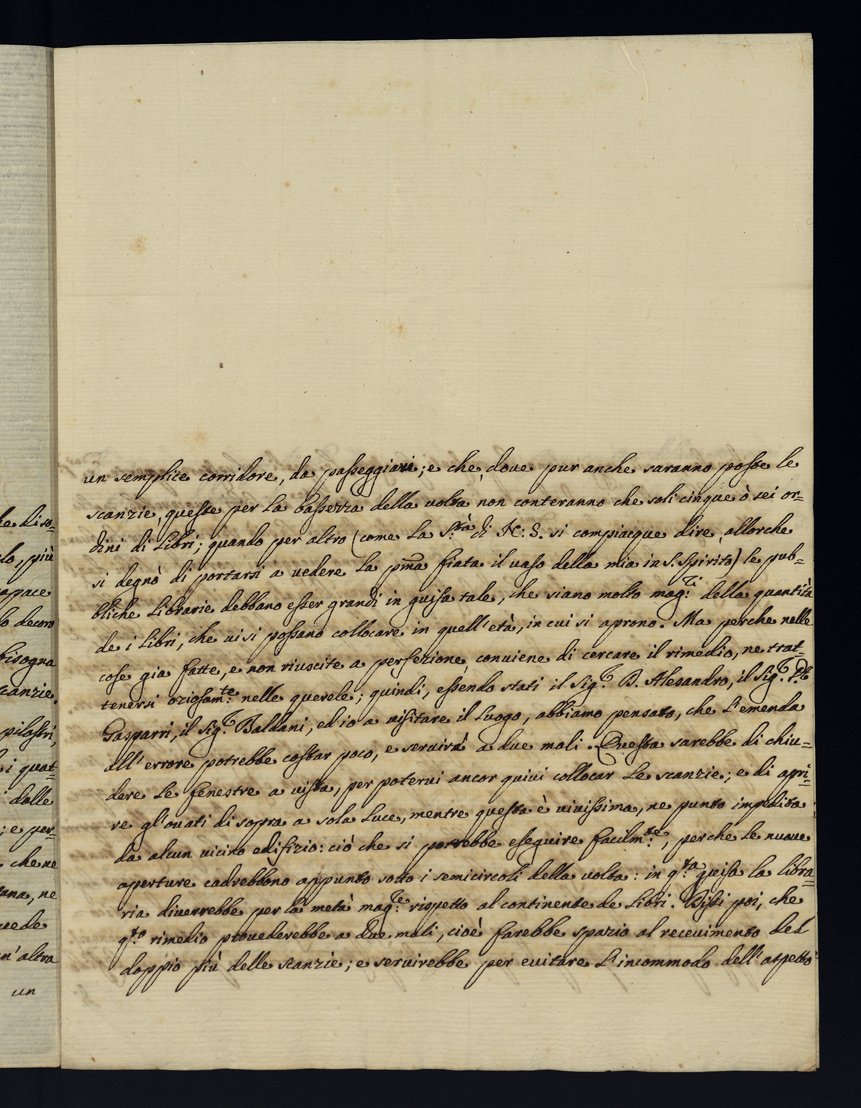 he Liso=
lo, più
apace
lo decoro
bisogna
canzie.
pilastri,
i quat=
i dalle
; e per=
che ne
tana, ne
vede
n'altra
un
un semplice corridore, da passeggiarvi; e che, dove pur anche saranno poste le
scanzie, queste per la bassezza della volta non conteranno che soli cinque ò sei or=
dini di Libri; quando per altro (come la S.tà di N. S. si compiacque dire, allorche
si degnò di portarsi a vedere la pma fiata il vaso della mia in S. Spirito) le pub=
bliche Librarie debbano esser grandi in guisa tale, che siano molto mag.ri della quantità
de i Libri, che vi si possano collocare in quell'età, in cui si aprono. Ma perche nelle
cose gia fatte, e non riuscite a perfezione, conviene di cercare il rimedio, ne trat=
tenersi oziosam.te nelle querele; quindi, essendo stati il Sig.r D. Alesandro, il Sig.r
Gasparri, il Sig.r Baldani, ed io a visitare il luogo, abbiamo pensato, che l'emenda
all'errore potrebbe costar poco, e servirà a due mali. Questa sarebbe di chiu=
dere le fenestre a vista, per potervi ancor quivi collocar le scanzie; e di apri=
re gl'ovati di sopra a sola luce, mentre questa è vivissima, ne punto impedita
da alcun vicino edifizio: ciò che si potrebbe eseguire facilm.te, perche le nuove
aperture cadrebbono appunto sotto i semicircoli della volta: in q.ta guisa la libra=
ria diverrebbe per la metà mag.re rispetto al continente de Libri. Dissi poi, che
q.to rimedio provederebbe a due mali, cioè farebbe spazio al recevimento del
doppio più delle scanzie; e servirebbe per evitare l'incommodo dell'aspetto